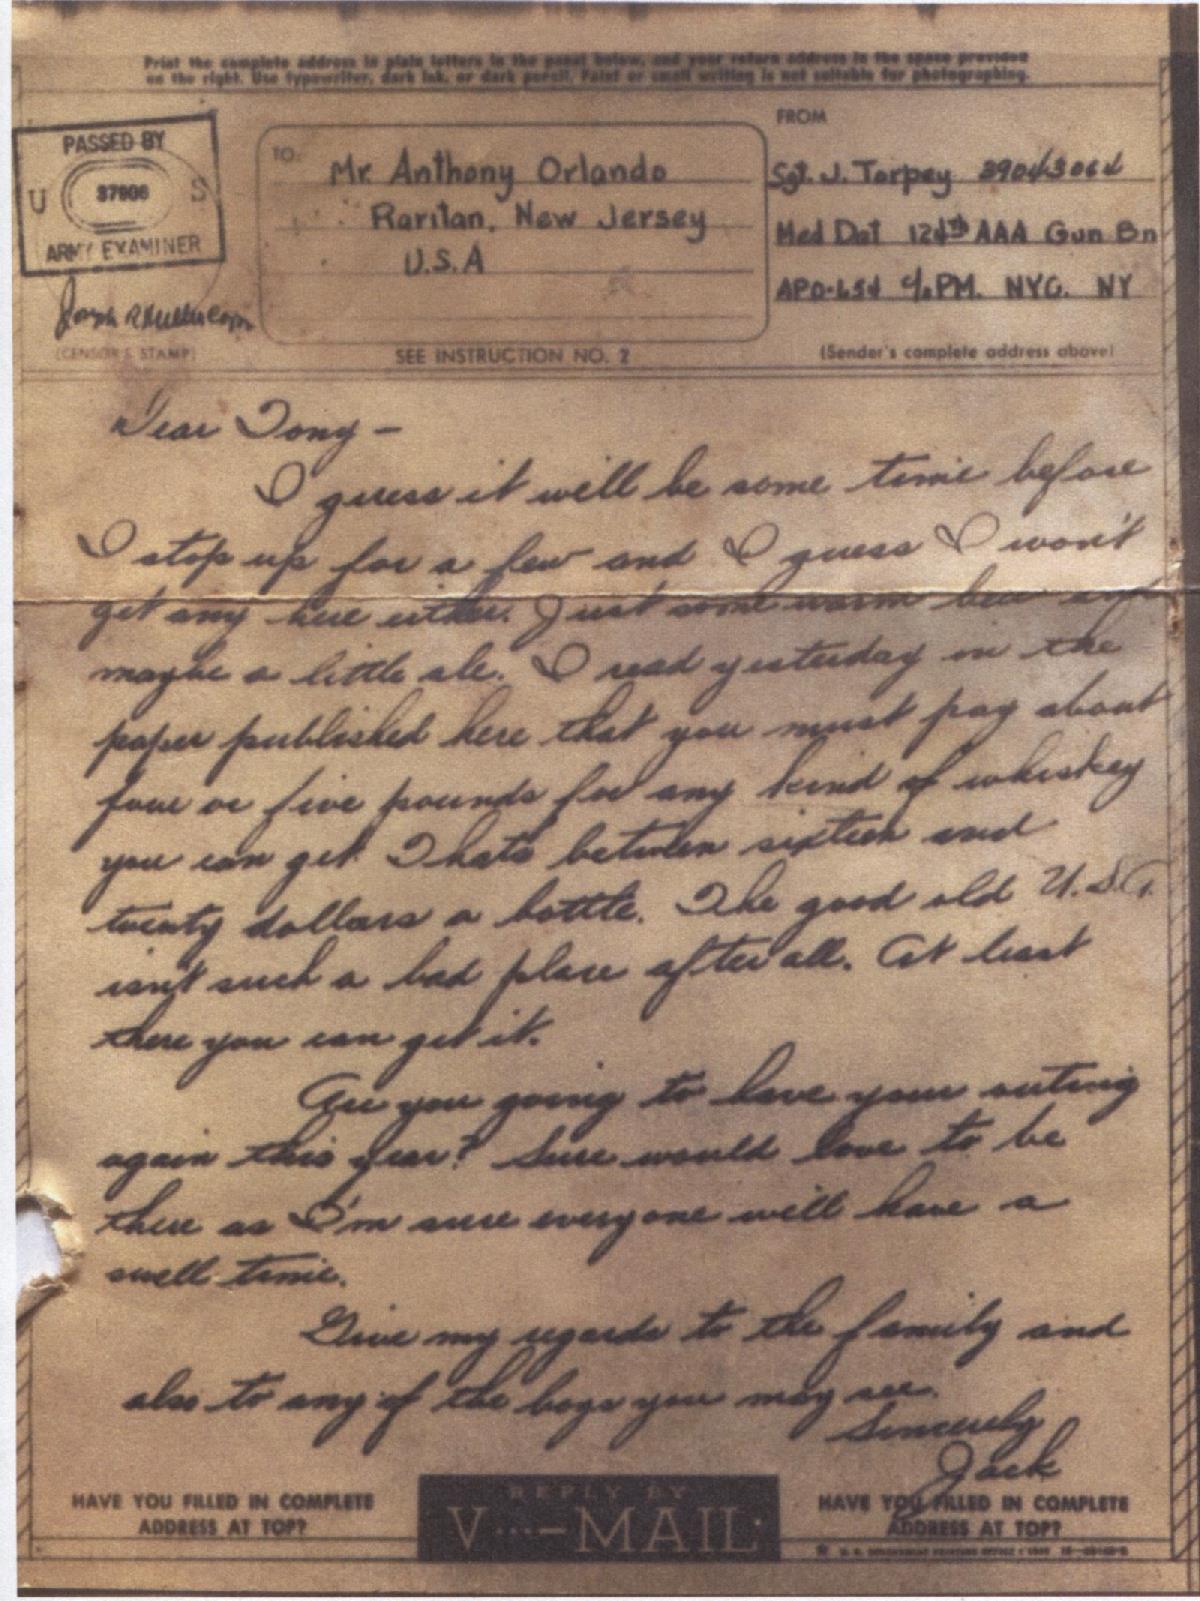 Print the complete address in plain letters in the panel below, and your return address in the space provided
on the right. Use typewriter, dark ink, or dark pencil. Faint or small writing is not suitable for photographing.
FROM
PASSED BY
U 37606 S
ARMY EXAMINER
(CENSOR'S STAMP)
TO:
Mr. Anthony Orlando
Raritan, New Jersey
U.S.A
SEE INSTRUCTION NO. 2
Sgt. J. Torpey
Med Det 124th AAA Gun Bn
APO-654 c/o PM. NYC. NY
(Sender's complete address above)
Dear Tony —
I guess it will be some time before
I stop up for a few and I guess I won't
get any here either. Just some warm beer and
maybe a little ale. I read yesterday in the
paper published here that you must pay about
four or five pounds for any kind of whiskey
you can get. Thats between sixteen and
twenty dollars a bottle. The good old U.S.A.
isn't such a bad place after all. At least
there you can get it.
Are you going to have your outing
again this year? Sure would love to be
there as I'm sure everyone will have a
swell time.
Give my regards to the family and
also to any of the boys you may see.
Sincerely
Jack
HAVE YOU FILLED IN COMPLETE
ADDRESS AT TOP?
REPLY BY
V···—MAIL
HAVE YOU FILLED IN COMPLETE
ADDRESS AT TOP?